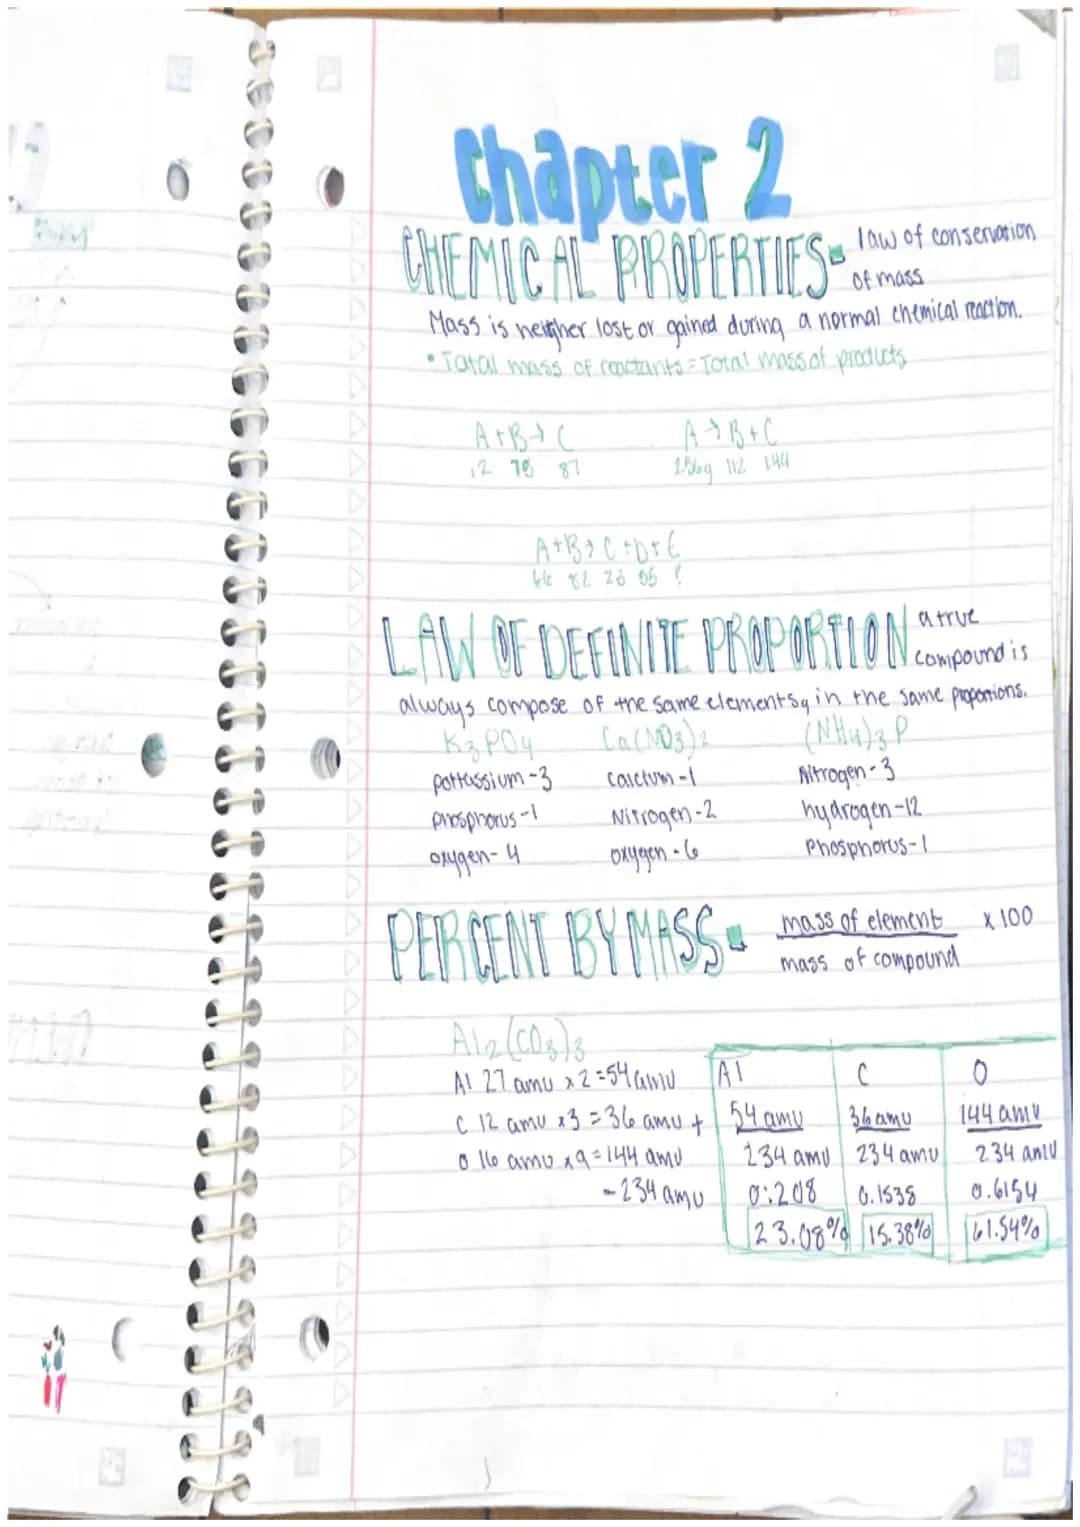 Chapter 2
CHEMICAL PROPERTIES- law of conservation
of mass
Mass is neither lost or gained during a normal chemical reaction.
• Total mass of reactants = Total mass of products
A+B→ C
12 75 87
A → B + C
256g 112 144
A+B→ C+D+E
66 82 23 55 ?
LAW OF DEFINITE PROPORTION a true
compound is
always compose of the same elements, in the same proportions.
K3PO4
Ca(NO3)2
(NH4)3P
pottassium-3
calcium-1
Nitrogen-3
phosphorus-1
Nitrogen-2
hydrogen-12
oxygen-4
oxygen-6
Phosphorus-1
PERCENT BY MASS- mass of element x 100
mass of compound
Al2(CO3)3
Al 27 amu x 2 = 54 amu
C 12 amu x3 = 36 amu +
O 16 amu x9 = 144 amu
- 234 amu
Al C O
54 amu 36 amu 144 amu
234 amu 234 amu 234 amu
0.208 0.1538 0.6154
23.08% 15.38% 61.54%